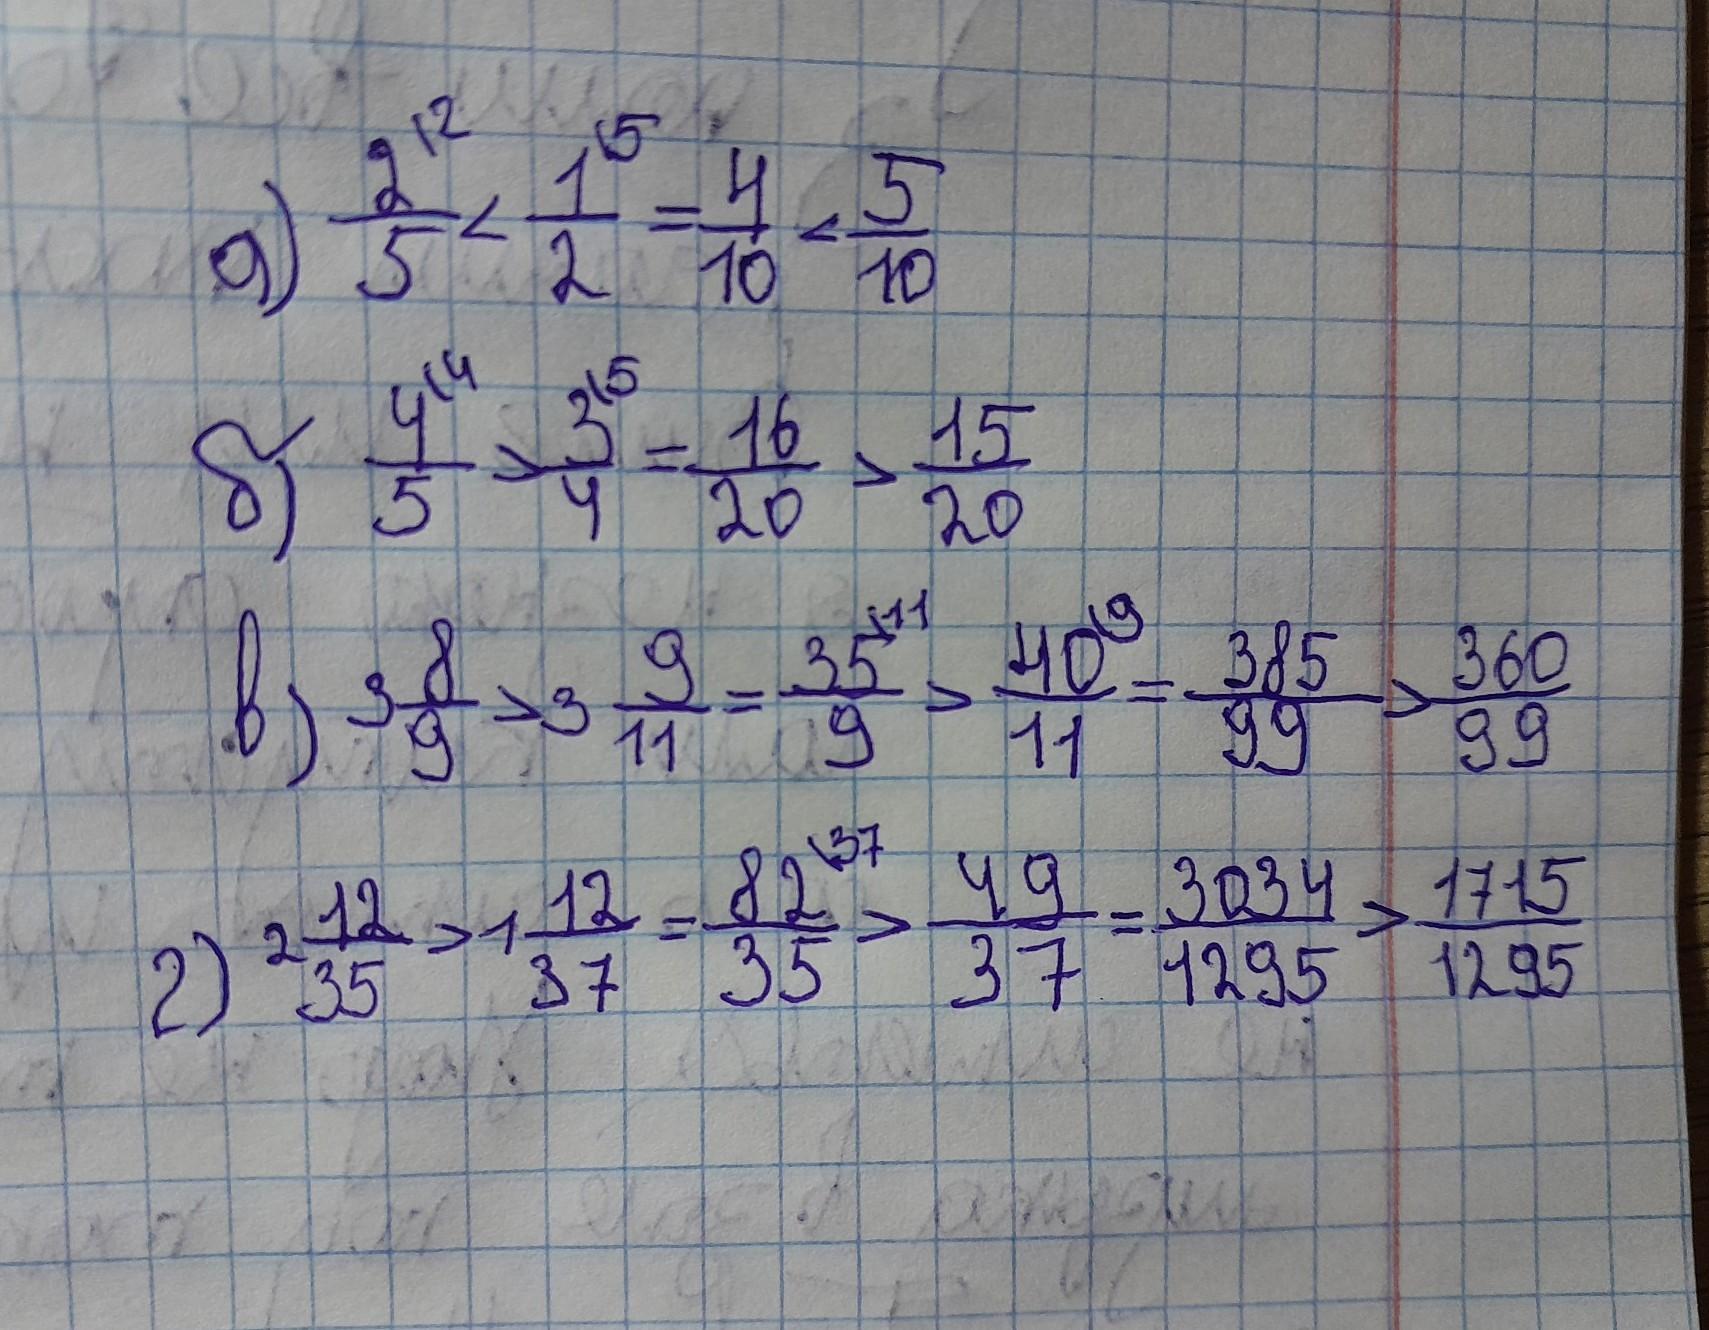 а) 2\2/5 < 1\5/2 = 4/10 < 5/10
б) 4\4/5 > 3\5/4 = 16/20 > 15/20
в) 3 8/9 > 3 9/11 = 35\11/9 > 40\9/11 = 385/99 > 360/99
г) 2 12/35 > 1 12/37 = 82\37/35 > 49/37 = 3034/1295 > 1715/1295